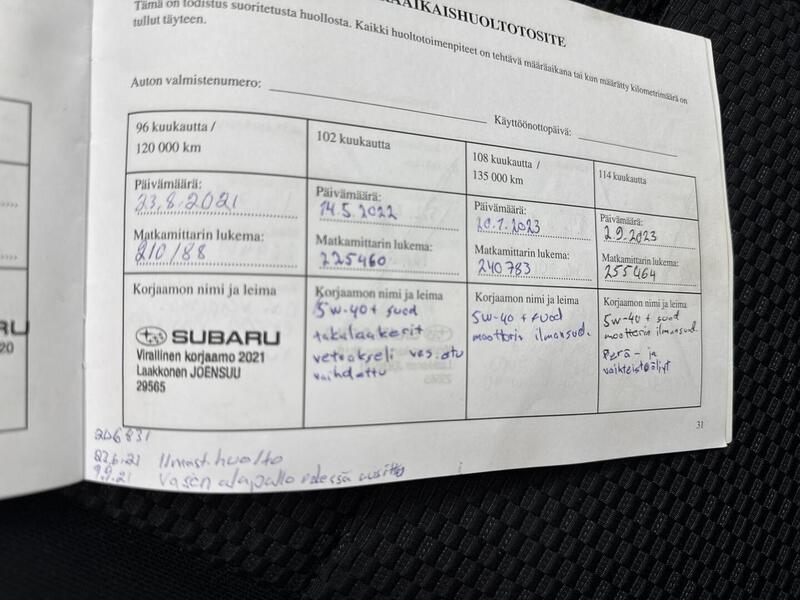 ÄÄRÄAIKAISHUOLTOTOSITE
Tämä on todistus suoritetusta huollosta. Kaikki huoltotoimenpiteet on tehtävä määräaikana tai kun määrätty kilometrimäärä on
tullut täyteen.
Auton valmistenumero:
Käyttöönottopäivä:
96 kuukautta /
120 000 km
Päivämäärä:
23.8.2021
Matkamittarin lukema:
210188
Korjaamon nimi ja leima
SUBARU
Virallinen korjaamo 2021
Laakkonen JOENSUU
29565
102 kuukautta
Päivämäärä:
14.5.2022
Matkamittarin lukema:
225460
Korjaamon nimi ja leima
5W-40 + suod
takalaakerit
vetoakseli vas. etu
vaihdettu
108 kuukautta /
135 000 km
Päivämäärä:
20.1.2023
Matkamittarin lukema:
240783
Korjaamon nimi ja leima
5W-40 + suod
moottorin ilmansuod.
114 kuukautta
Päivämäärä:
2.9.2023
Matkamittarin lukema:
255464
Korjaamon nimi ja leima
5W-40 + suod
moottorin ilmansuod.
Perä- ja
vaihteistoöljyt
31
206831
23.6.21 Ilmast.huolto
9.9.21 Vasen alapallo edessä uusittu
RU
20